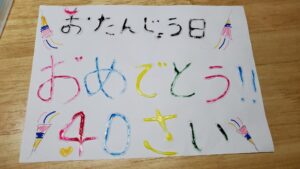 おたんじょう日
おめでとう!!
40さい